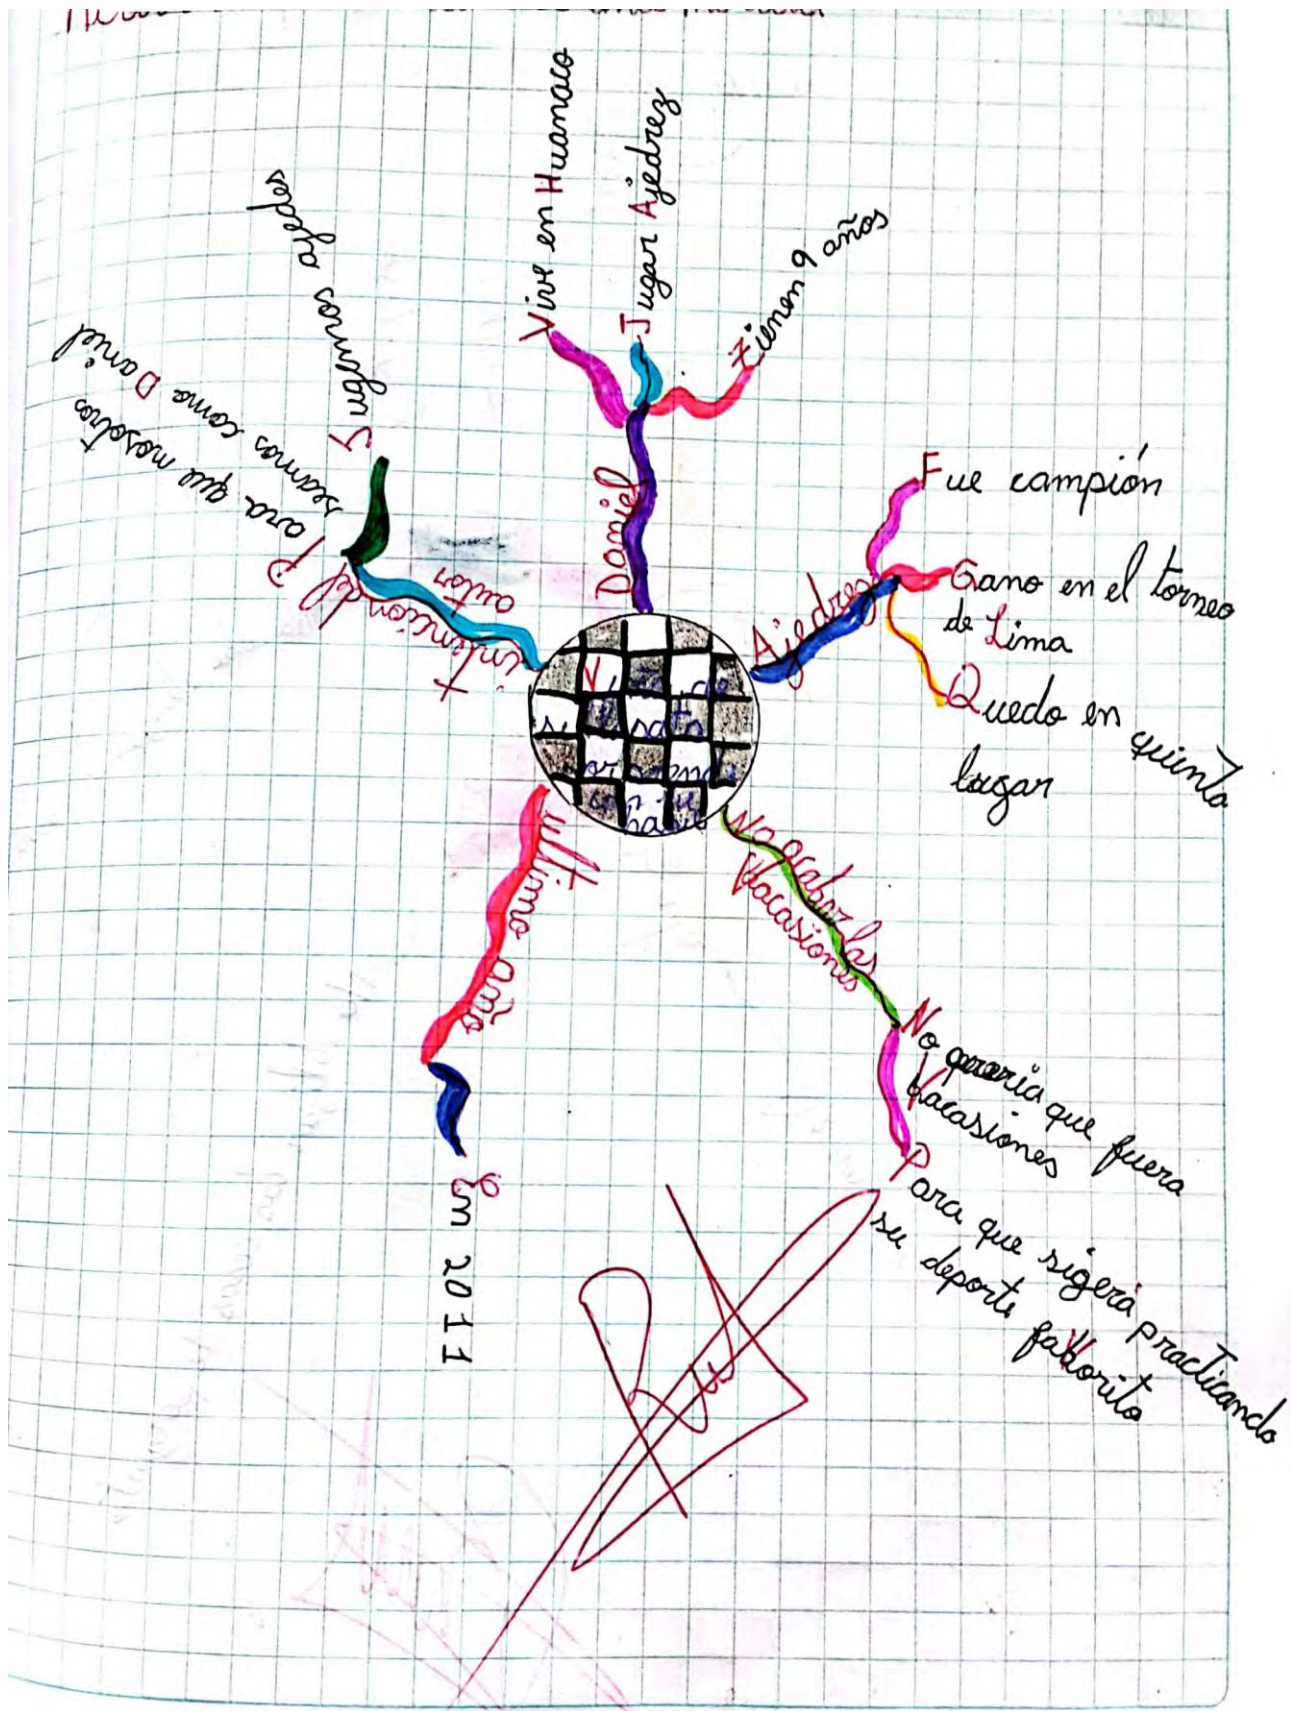 Daniel
Vive en Huanaco
Jugar Ajedrez
Tienen 9 años
Ajedrez
Fue campión
Gano en el torneo
de Lima
Quedo en quinto
lugar
No acabar las
Vacasiones
No queria que fuera
Vacasiones
Para que sigerá practicando
su deporte faVorito
ultimo año
En 2011
intencion del
autor
Para que nosotros
seamos como Daniel
Jugemos ajedes